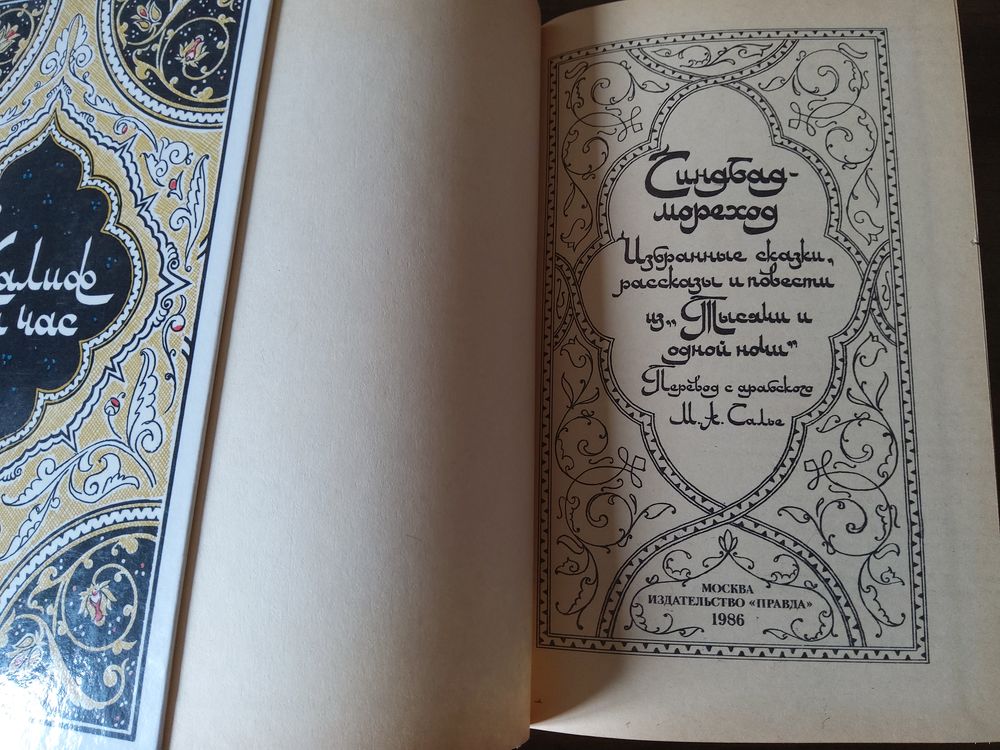 Халиф
час
Синдбад-
мореход
Избранные сказки,
рассказы и повести
из „Тысячи и
одной ночи“
Перевод с арабского
М.А. Салье
МОСКВА
ИЗДАТЕЛЬСТВО «ПРАВДА»
1986